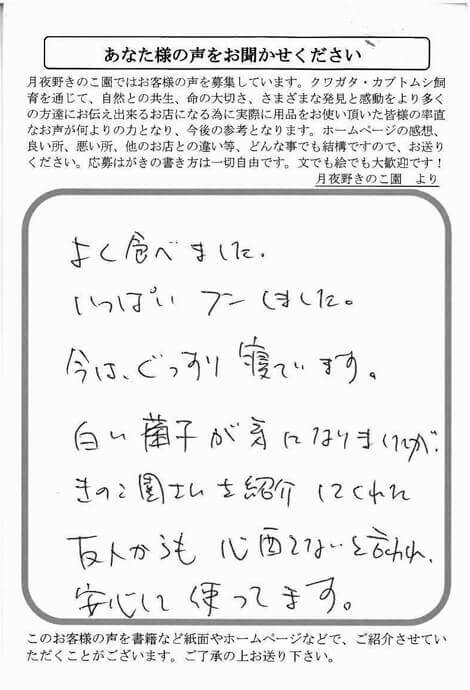 あなた様の声をお聞かせください
月夜野きのこ園ではお客様の声を募集しています。クワガタ・カブトムシ飼
育を通じて、自然との共生、命の大切さ、さまざまな発見と感動をより多く
の方達にお伝え出来るお店になる為に実際に用品をお使い頂いた皆様の率直
なお声が何よりの力となり、今後の参考となります。ホームページの感想、
良い所、悪い所、他のお店との違い等、どんな事でも結構ですので、お送り
ください。応募はがきの書き方は一切自由です。文でも絵でも大歓迎です！
月夜野きのこ園　より
よく食べました。
いっぱい フンしました。
今は、ぐっすり寝ています。
白い菌子が気になりましたが、
きのこ園さんを紹介してくれた
友人からも 心配ないと言われ、
安心して使ってます。
このお客様の声を書籍など紙面やホームページなどで、ご紹介させてい
ただくことがございます。ご了承の上お送り下さい。